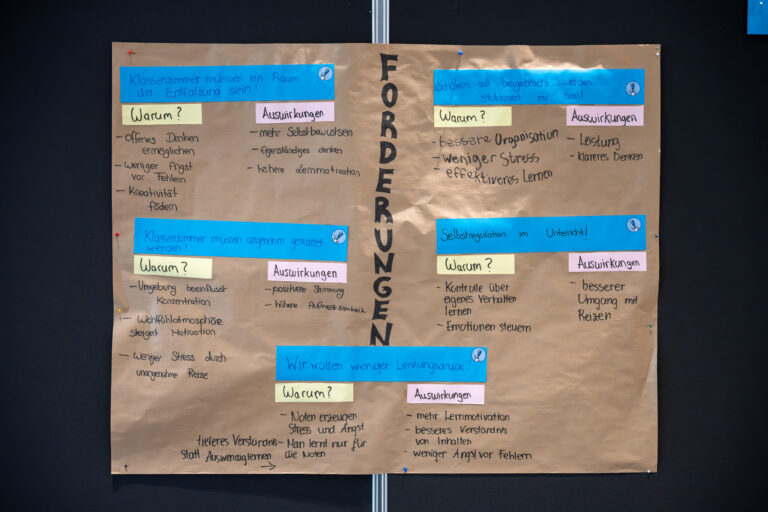 FORDERUNGEN
Klassenzimmer müssen ein Raum
der Entfaltung sein!
Warum?
- Offenes Denken
ermöglichen
- Weniger Angst
vor Fehlern
- Kreativität
födern
Auswirkungen
- mehr Selbstbewustsein
- Eigenständiges denken
- höhere Lernmotivation
Schülern soll beigebracht werden
stukturiert zu sein!
Warum?
- bessere Organisation
- weniger Stress
- effektiveres Lernen
Auswirkungen
- Leistung
- klareres Denken
Klassenzimmer müssen angenehm gestaltet
werden!
Warum?
- Umgebung beeinflusst
Konzentration
- Wohlfühlatmosphäre
steigert Motivation
- weniger Stress durch
unangenehme Reize
Auswirkungen
- positivere Stimmung
- höhere Aufmerksamkeit
Selbstregulation im Unterricht!
Warum?
- Kontrolle über
eigenes Verhalten
lernen
- Emotionen steuern
Auswirkungen
- besserer
Umgang mit
Reizen
Wir wollen weniger Leistungsdruck!
Warum?
- Noten erzeugen
Stress und Angst
- Man lernt nur für
die Noten
tieferes Verständnis
statt Auswendiglernen
→
Auswirkungen
- mehr Lernmotivation
- besseres Verständnis
von Inhalten
- weniger Angst vor Fehlern